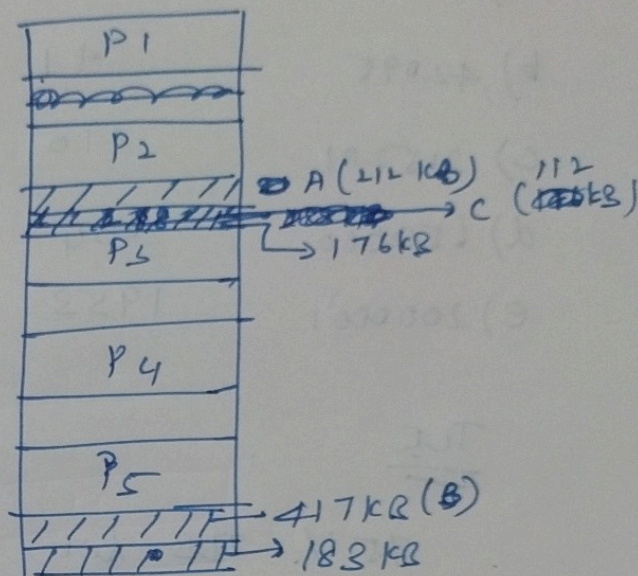 P1
P2
A (212 KB)
112
C ( KB)
176KB
P3
P4
P5
417KB (B)
183 KB